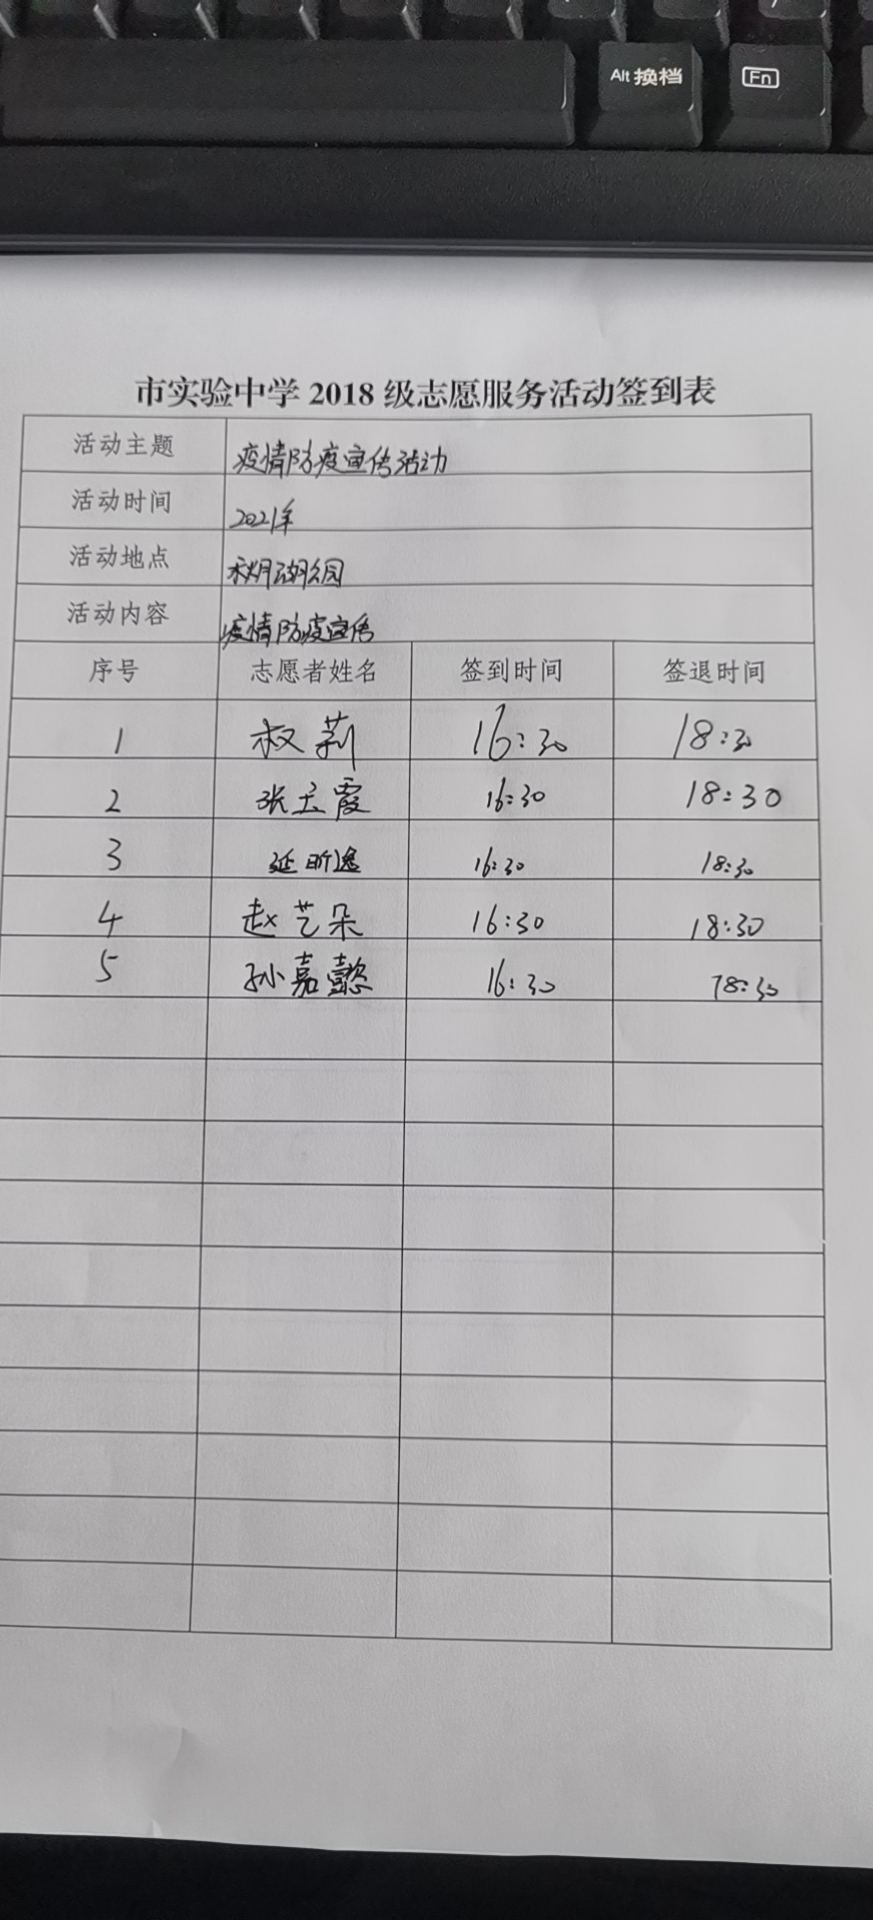 Alt 换档
Fn
市实验中学 2018 级志愿服务活动签到表
活动主题 疫情防疫宣传活动
活动时间 2021年
活动地点 秋月湖公园
活动内容 疫情防疫宣传
序号 志愿者姓名 签到时间 签退时间
1 权莉 16:30 18:30
2 张玉霞 16:30 18:30
3 延昕逸 16:30 18:30
4 赵艺朵 16:30 18:30
5 孙嘉懿 16:30 18:30